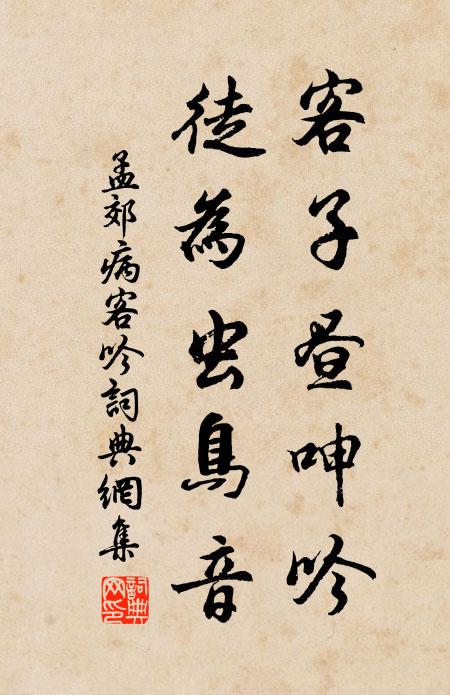 客子昼呻吟
徒為虫鳥音
孟郊病客吟詞典網集
詞典
网印